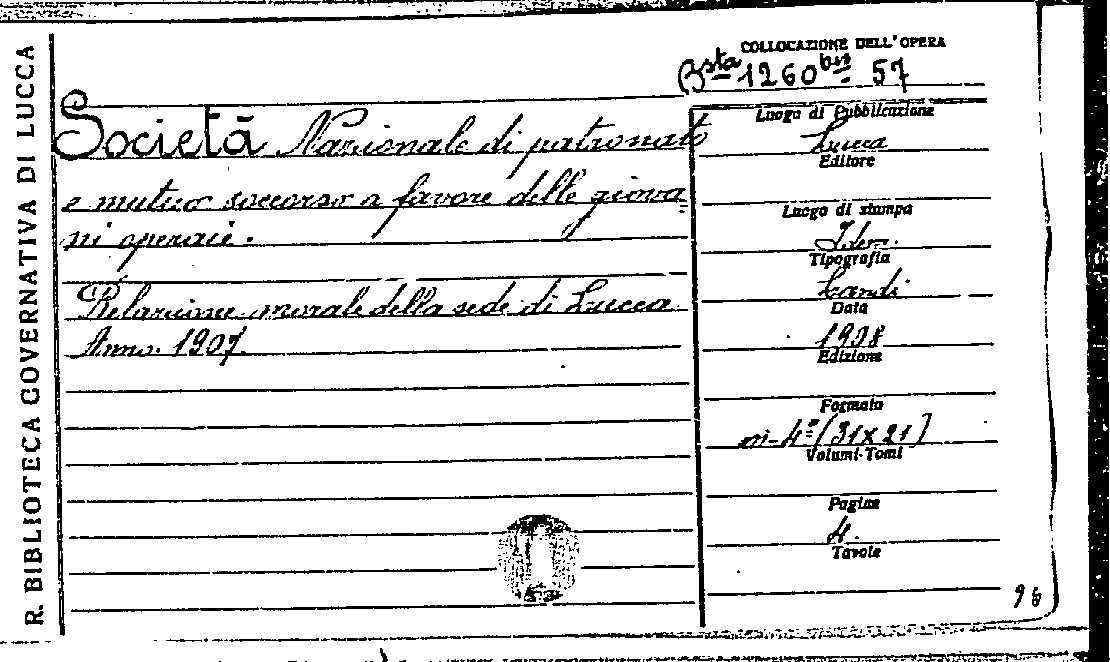 R. BIBLIOTECA GOVERNATIVA DI LUCCA
COLLOCAZIONE DELL'OPERA
Bsta 1260bis 57
Società Nazionale di patronato
e mutuo soccorso a favore delle giova
ni operaie.
Relazione morale della sede di Lucca
Anno 1907.
Luogo di Pubblicazione
Lucca
Editore
Luogo di stampa
Idem.
Tipografia
Landi
Data
1908
Edizione
Formato
in-4º (31x21)
Volumi-Tomi
Pagine
4.
Tavole
96